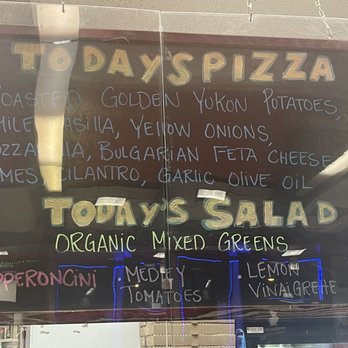 TODAY'S PIZZA
ROASTED GOLDEN YUKON POTATOES,
PASILLA, YELLOW ONIONS,
MOZZARELLA, BULGARIAN FETA CHEESE,
CILANTRO, GARLIC OLIVE OIL
TODAY'S SALAD
ORGANIC MIXED GREENS
PEPPERONCINI
MEDLEY TOMATOES
LEMON VINAIGRETTE